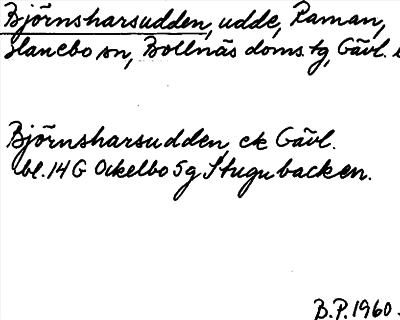 Björnsharsudden, udde, Raman,
Hanebo sn, Bollnäs doms. tg, Gävl.
Björnsharsudden, ek Gävl.
bl. 14 G Ockelbo 5 g Stugubacken.
B.P. 1960.